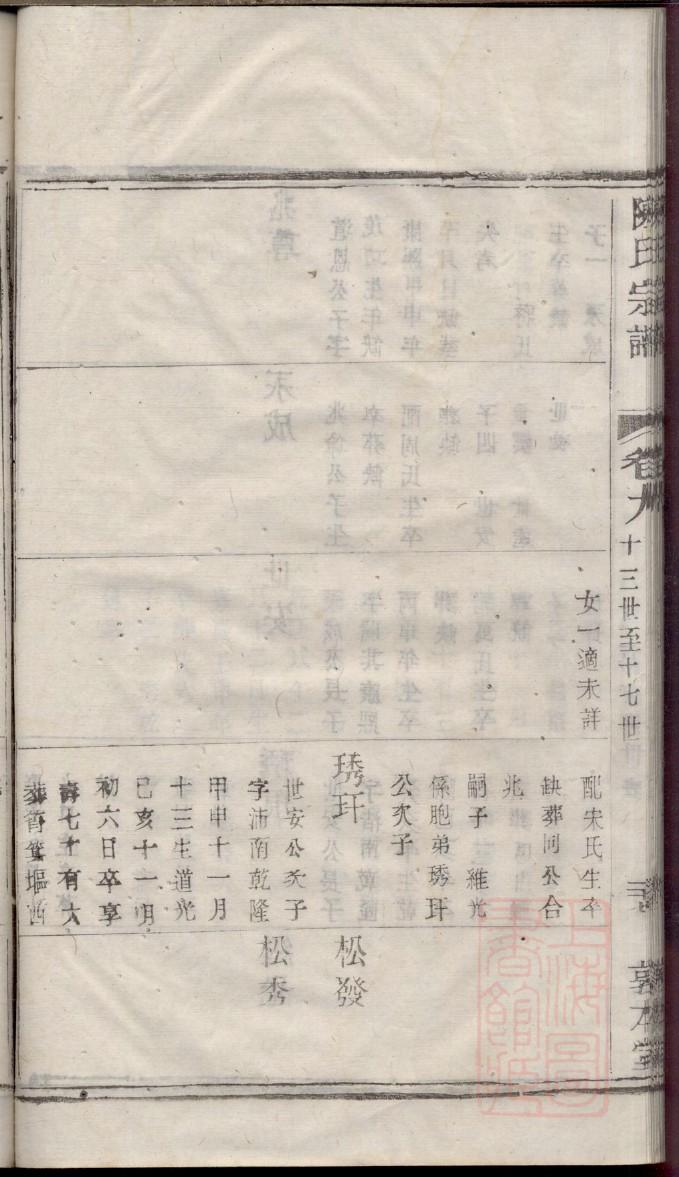 陳氏宗譜
卷九
十三世至十七世
敦本堂
女一適未詳
配宋氏生卒
缺葬同公合
兆
嗣子 維光
係胞弟琇玕
公次子
琇玕
世安公次子
字沛南乾隆
甲申十一月
十三生道光
己亥十一月
初六日卒享
壽七十有六
葬筲箕塸西
松發
松秀
上海圖書館藏